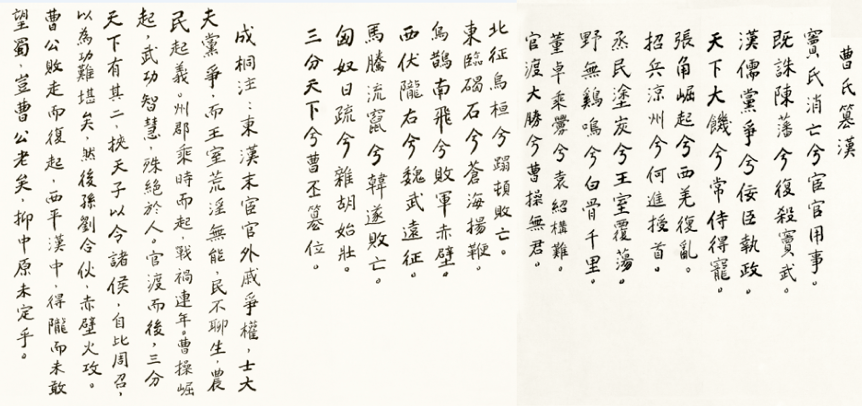 曹氏篡漢
竇氏消亡兮宦官用事。
既誅陳藩兮復殺竇武。
漢儒黨爭兮佞臣執政。
天下大饑兮常侍得寵。
張角崛起兮西羌復亂。
招兵涼州兮何進授首。
烝民塗炭兮王室覆蕩。
野無鷄鳴兮白骨千里。
董卓乘釁兮袁紹構難。
官渡大勝兮曹操無君。
北征烏桓兮蹋頓敗亡。
東臨碣石兮蒼海揚鞭。
烏鵲南飛兮敗軍赤壁。
西伏隴右兮魏武遠征。
馬騰流竄兮韓遂敗亡。
匈奴日疏兮雜胡始壯。
三分天下兮曹丕篡位。
成桐注：東漢末宦官外戚爭權，士大
夫黨爭，而王室荒淫無能，民不聊生，農
民起義。州郡乘時而起，戰禍連年。曹操崛
起，武功智慧，殊絕於人。官渡而後，三分
天下有其二，挾天子以令諸侯，自比周召，
以為功難堪矣，然後孫劉合伙，赤壁火攻。
曹公敗走而復起，西平漢中，得隴而未敢
望蜀，豈曹公老矣，抑中原未定乎。